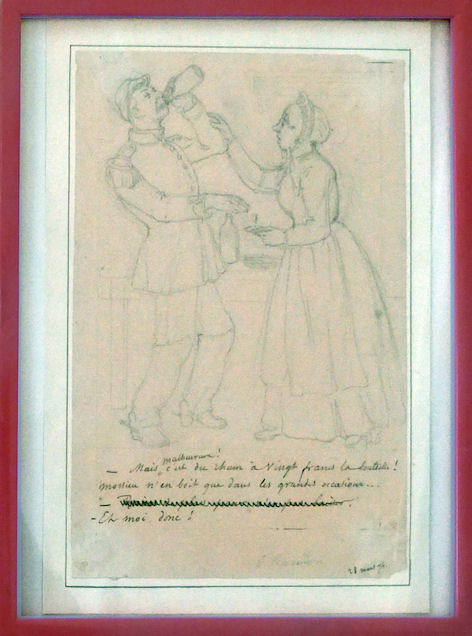 malheureux!
— Mais, c'est du rhum à Vingt francs la bouteille!
monsieu n'en boit que dans les grandes occasions...
—
- Et moi, donc!